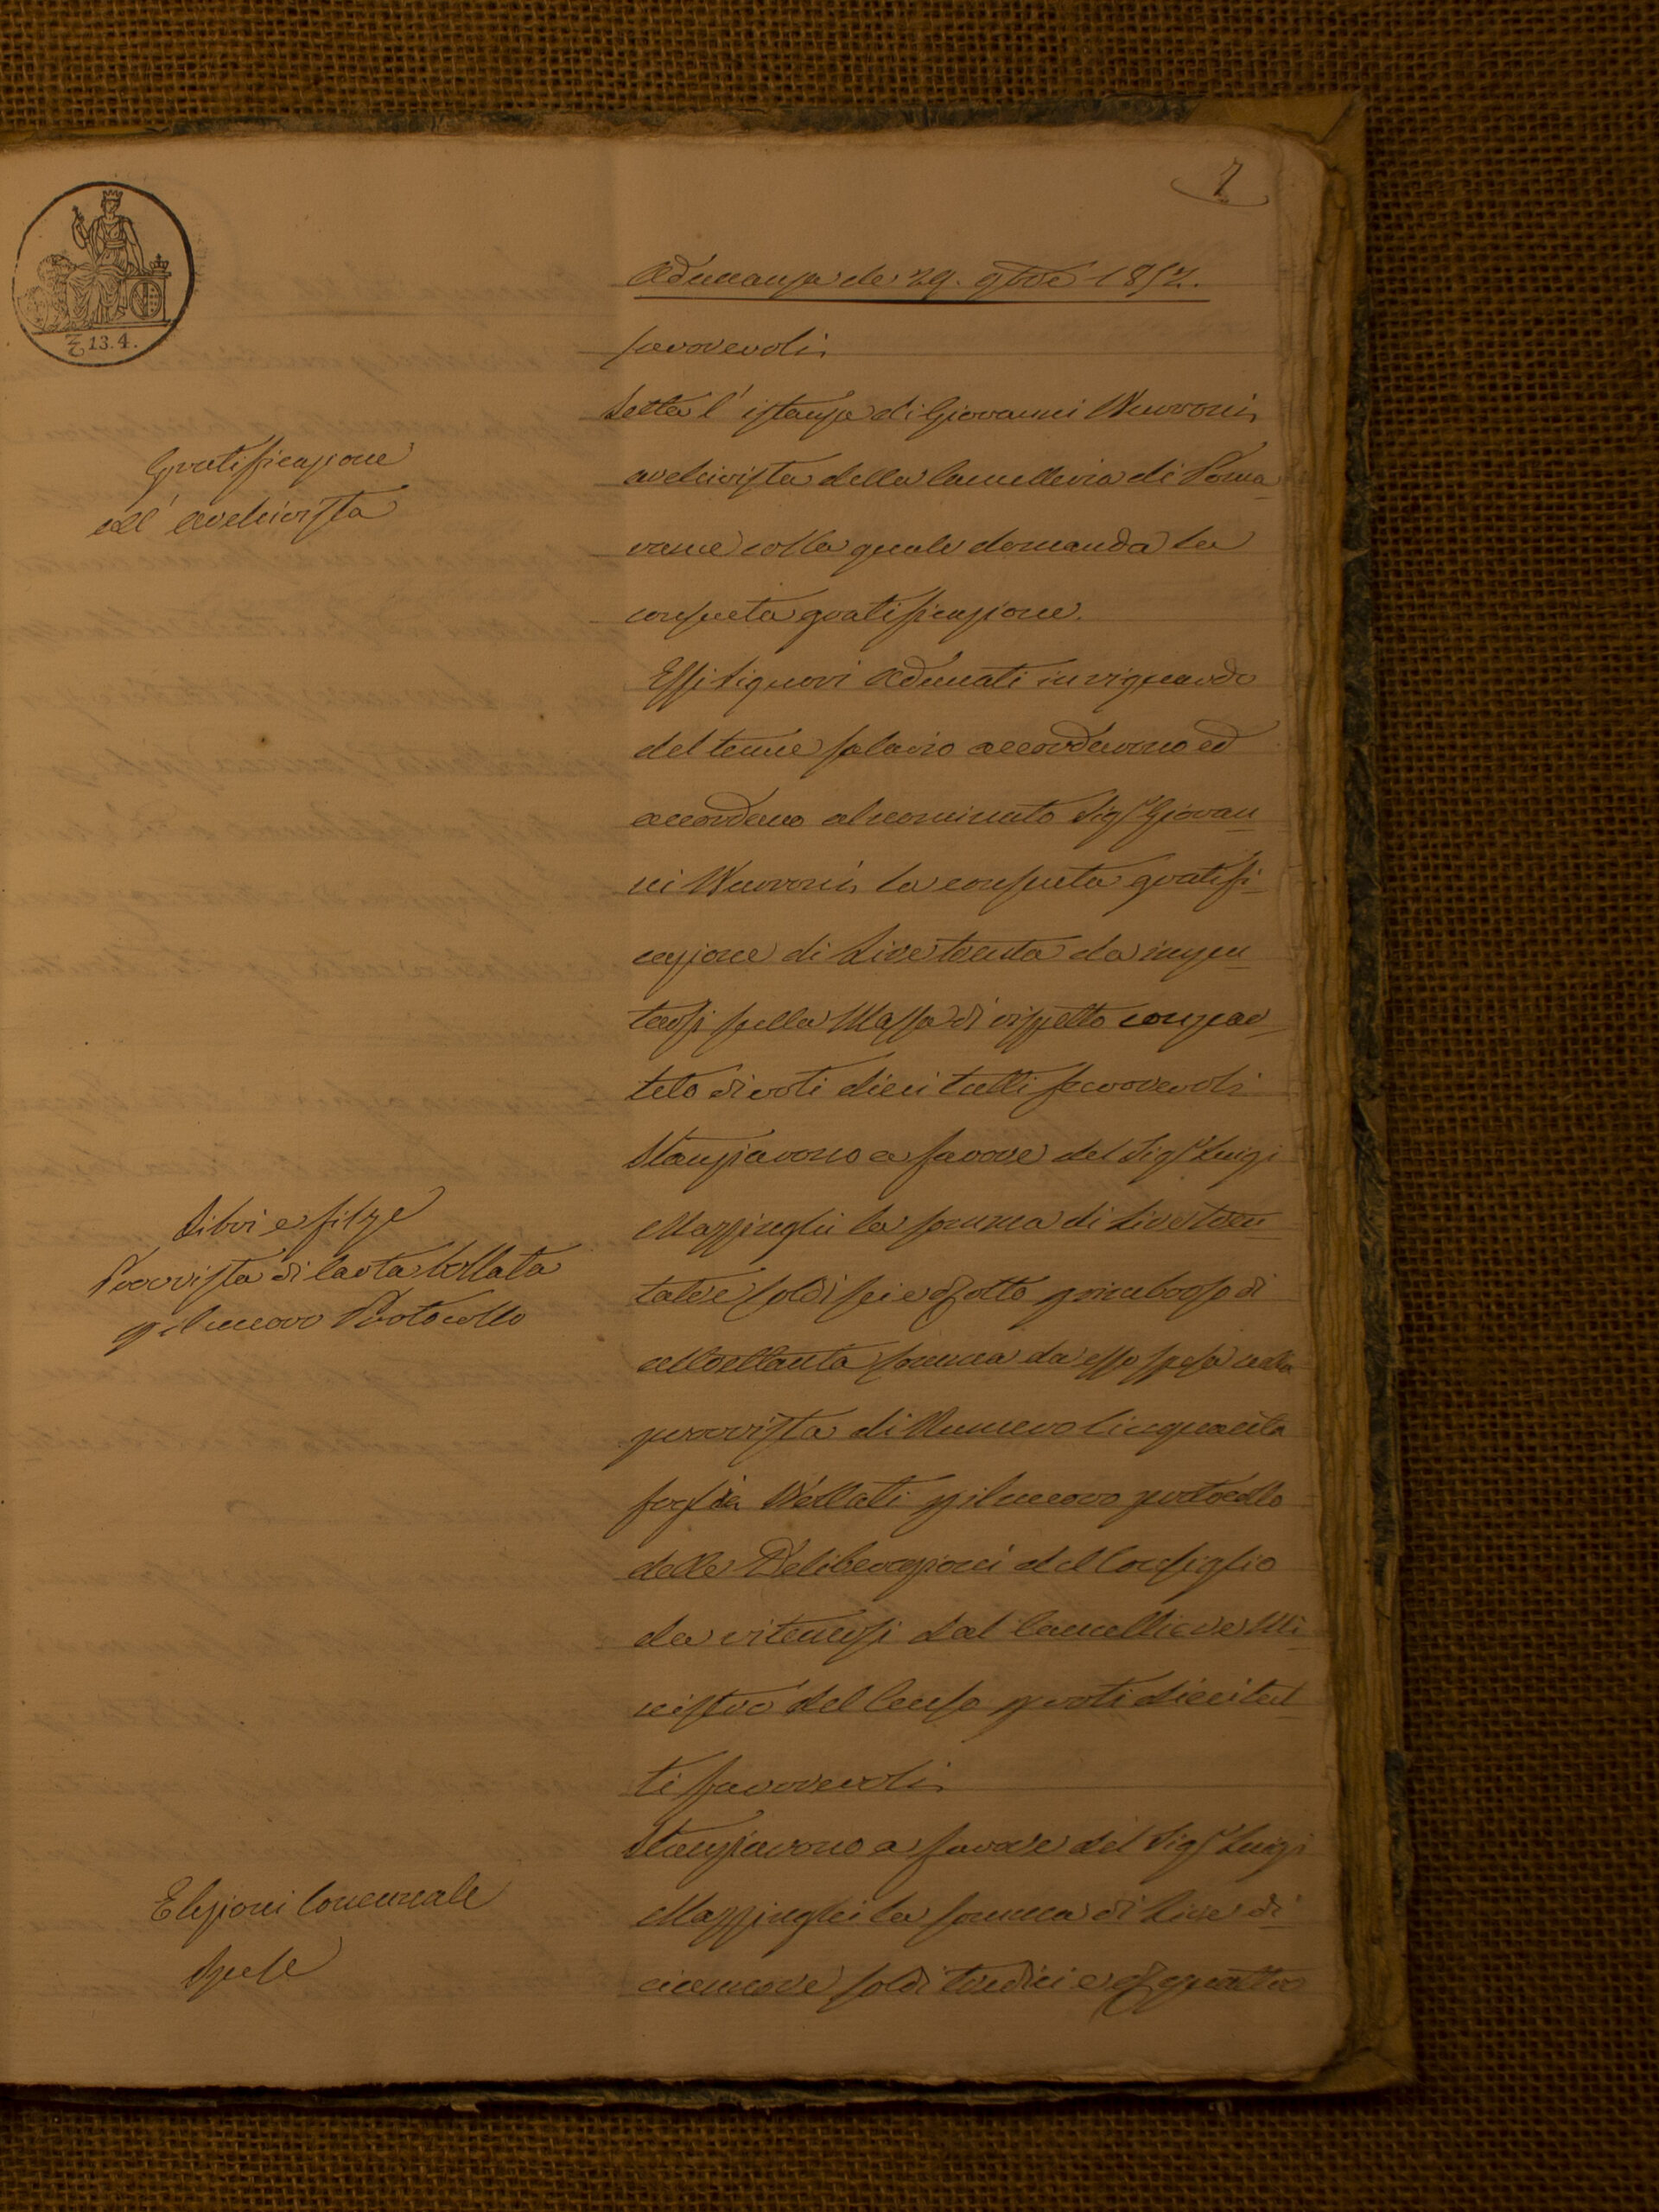 7
Adunanza de 29. 9bre 1852.
favorevoli
Letta l'istanza di Giovanni Nuvoni
Gratificazione
all' Archivista
archivista della Cancelleria di Poma
rance colla quale domanda la
consueta gratificazione.
Essi Signori Adunati in riguardo
del tenue salario accordarono ed
accordano al nominato Sig.r Giovan
ni la consueta gratifi
cazione di Lire trenta da
tarsi sulla Massa di rispetto con par
tito di voti dieci tutti favorevoli
Stanziarono a favore del Sig.r Luigi
Libri e filze
Provvista di Carta bollata
p il nuovo Protocollo
Mazzinghi la somma di Lire tren
tatre soldi sei e d. otto p rimborso di
altrettanta somma da esso spesa nella
provvista di Numero Cinquanta
foglia Bollati p il nuovo protocollo
delle Deliberazioni del Consiglio
da ritenersi dal Cancelliere Mi
nistro del Censo p voti dieci tut
ti favorevoli
Stanziarono a favore del Sig.r Luigi
Elezioni Comunale
Spese
Mazzinghi la somma di Lire di
cianove soldi tredici e d. quattro
₤ 13.4.